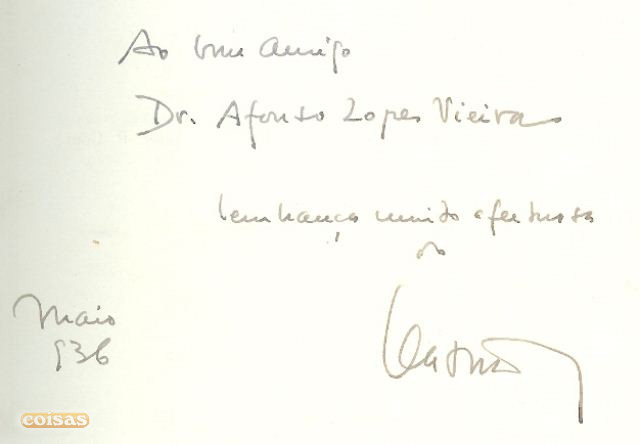 Ao bom amigo
Dr. Afonso Lopes Vieira
lembrança muito afectuosa
do
Maio
936
coisas